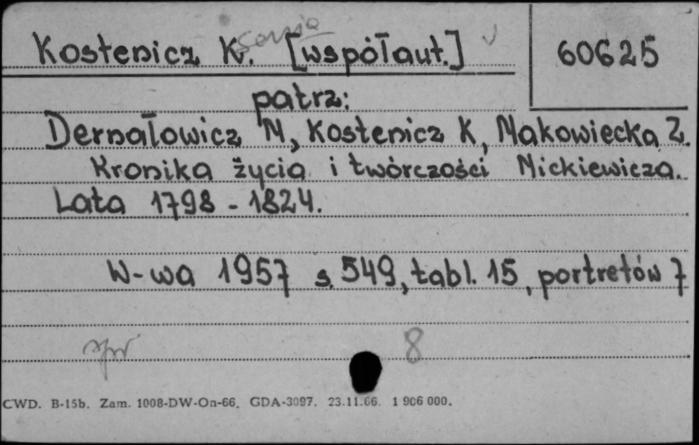 Kostenicz K. [współaut.]
60625
patrz:
Dernałowicz M, Kostenicz K, Makowiecka Z.
Kronika życia i twórczości Mickiewicza.
Lata 1798 - 1824.
W-wa 1957 s. 549, tabl. 15, portretów 7
8
CWD. B-15b. Zam. 1008-DW-On-66. GDA-3097. 23.11.66. 1 906 000.